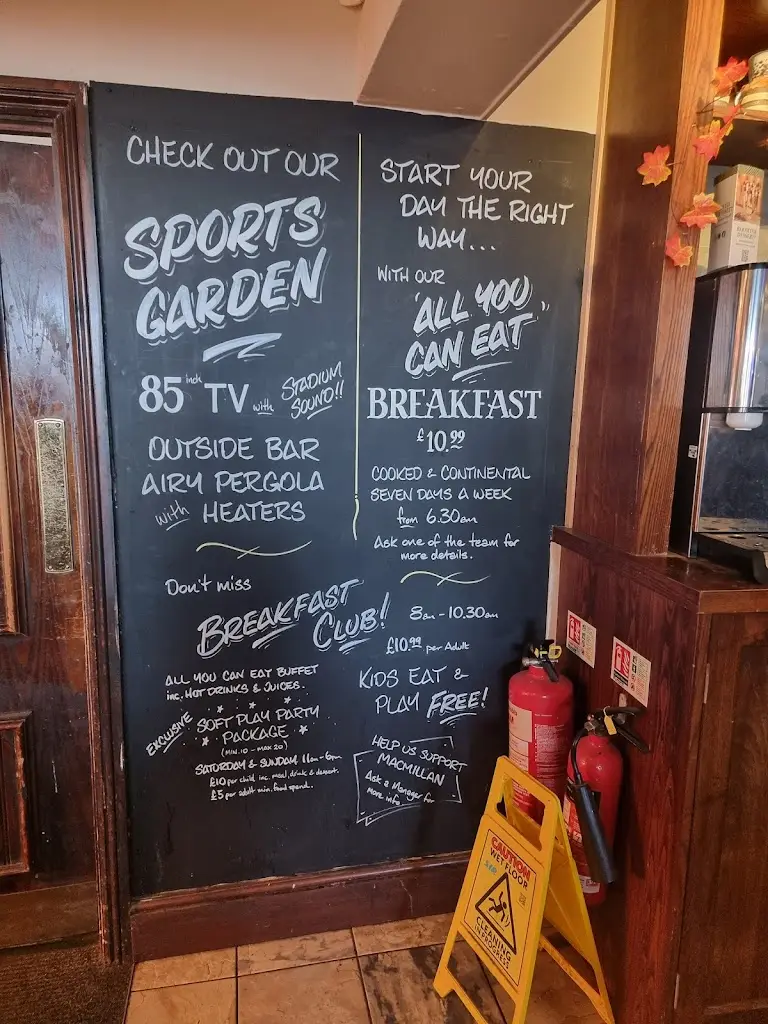 CHECK OUT OUR
SPORTS
GARDEN
85 inch TV with STADIUM
SOUND!!
OUTSIDE BAR
AIRY PERGOLA
with HEATERS
START YOUR
DAY THE RIGHT
WAY...
WITH OUR
'ALL YOU
CAN EAT'
BREAKFAST
£10.99
COOKED & CONTINENTAL
SEVEN DAYS A WEEK
from 6.30am
Ask one of the team for
more details.
Don't miss
BREAKFAST
CLUB!
8am - 10.30am
£10.99 per Adult
ALL YOU CAN EAT BUFFET
inc. HOT DRINKS & JUICES.
KIDS EAT &
PLAY FREE!
EXCLUSIVE
SOFT PLAY PARTY
PACKAGE
(MIN.10 - MAX 20)
SATURDAY & SUNDAY 11am - 6pm
£10 per child inc. meal, drink & dessert.
£5 per adult min. food spend.
HELP US SUPPORT
MACMILLAN
Ask a Manager for
more info.
CAUTION
WET FLOOR
CLEANING
IN PROGRESS